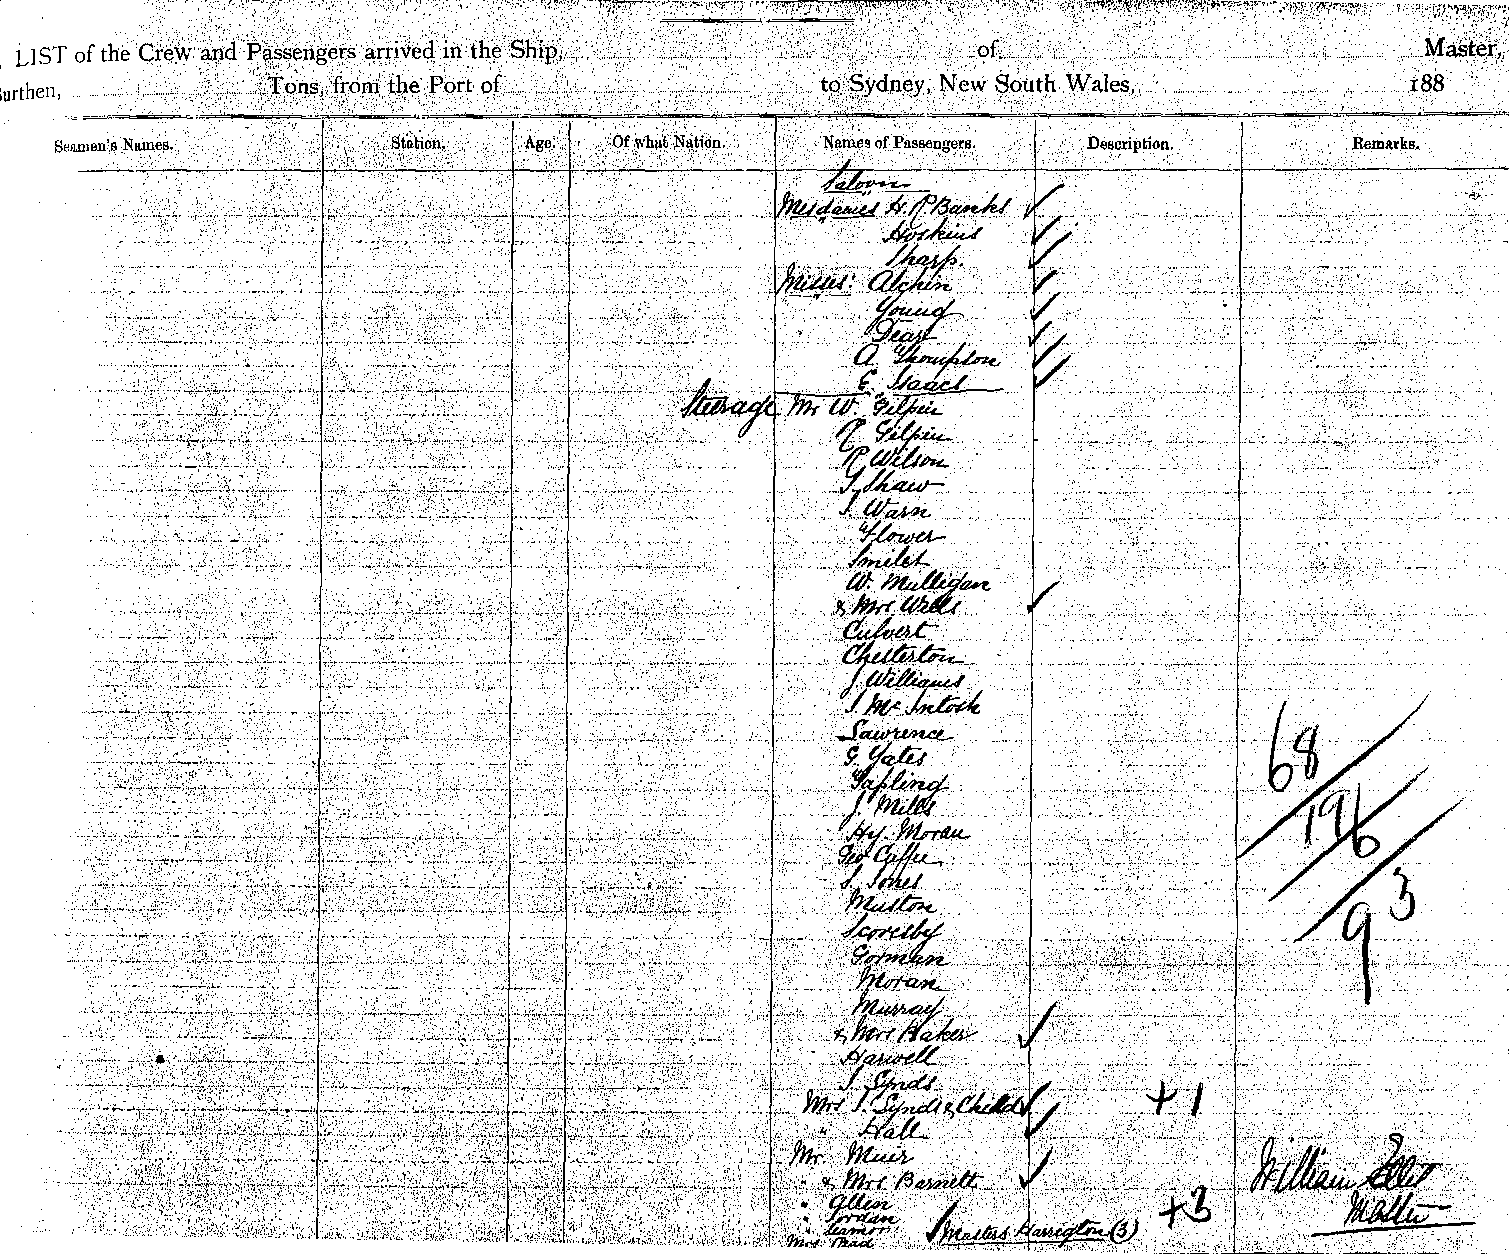 LIST of the Crew and Passengers arrived in the Ship, of Master,
Burthen, Tons, from the Port of to Sydney, New South Wales, 188
Seamen's Names. Station. Age. Of what Nation. Names of Passengers. Description. Remarks.
Saloon
Mesdames H. R. Banks ✓
Hoskins ✓
Sharp ✓
Misses: Alchin ✓
Young ✓
Dear ✓
A. Thompson ✓
E. Isaacs ✓
Steerage Mr W. Gilpin
R. Gilpin
R. Wilson
J. Shaw
J. Warn
Flower
Smiles
W. Mulligan
& Mrs Wells ✓
Culvert
Chesterton
J. Williams
J. McIntosh
Lawrence
G. Yates
Tapling
J. Mills
Hy. Moran
Geo
S. Jones
Muston
Scoresby
Gorman
Moran
Murray
& Mrs Baker ✓
Harwell
J. Synds
Mrs J. Synds & Child ✓ +1
" Hall ✓
Mr. Muir
" & Mrs Barnett ✓
" Allen +3
" Jordan
" Seamor ✓ Masters Harrigton (3)
Mrs
68
196
93
William Ellis
Master